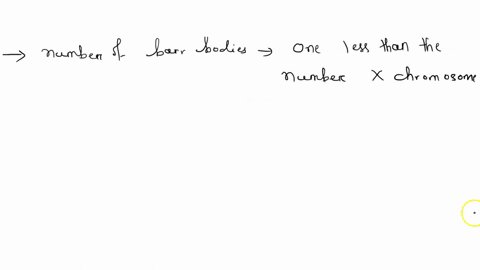 → number of barr bodies → One less than the
number X chromosome